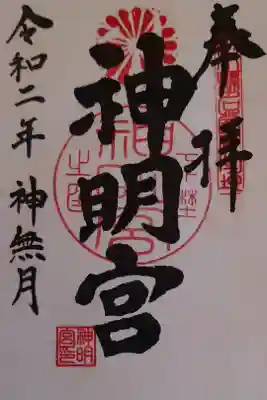 奉拝
神明宮
令和二年 神無月
神明
宮印